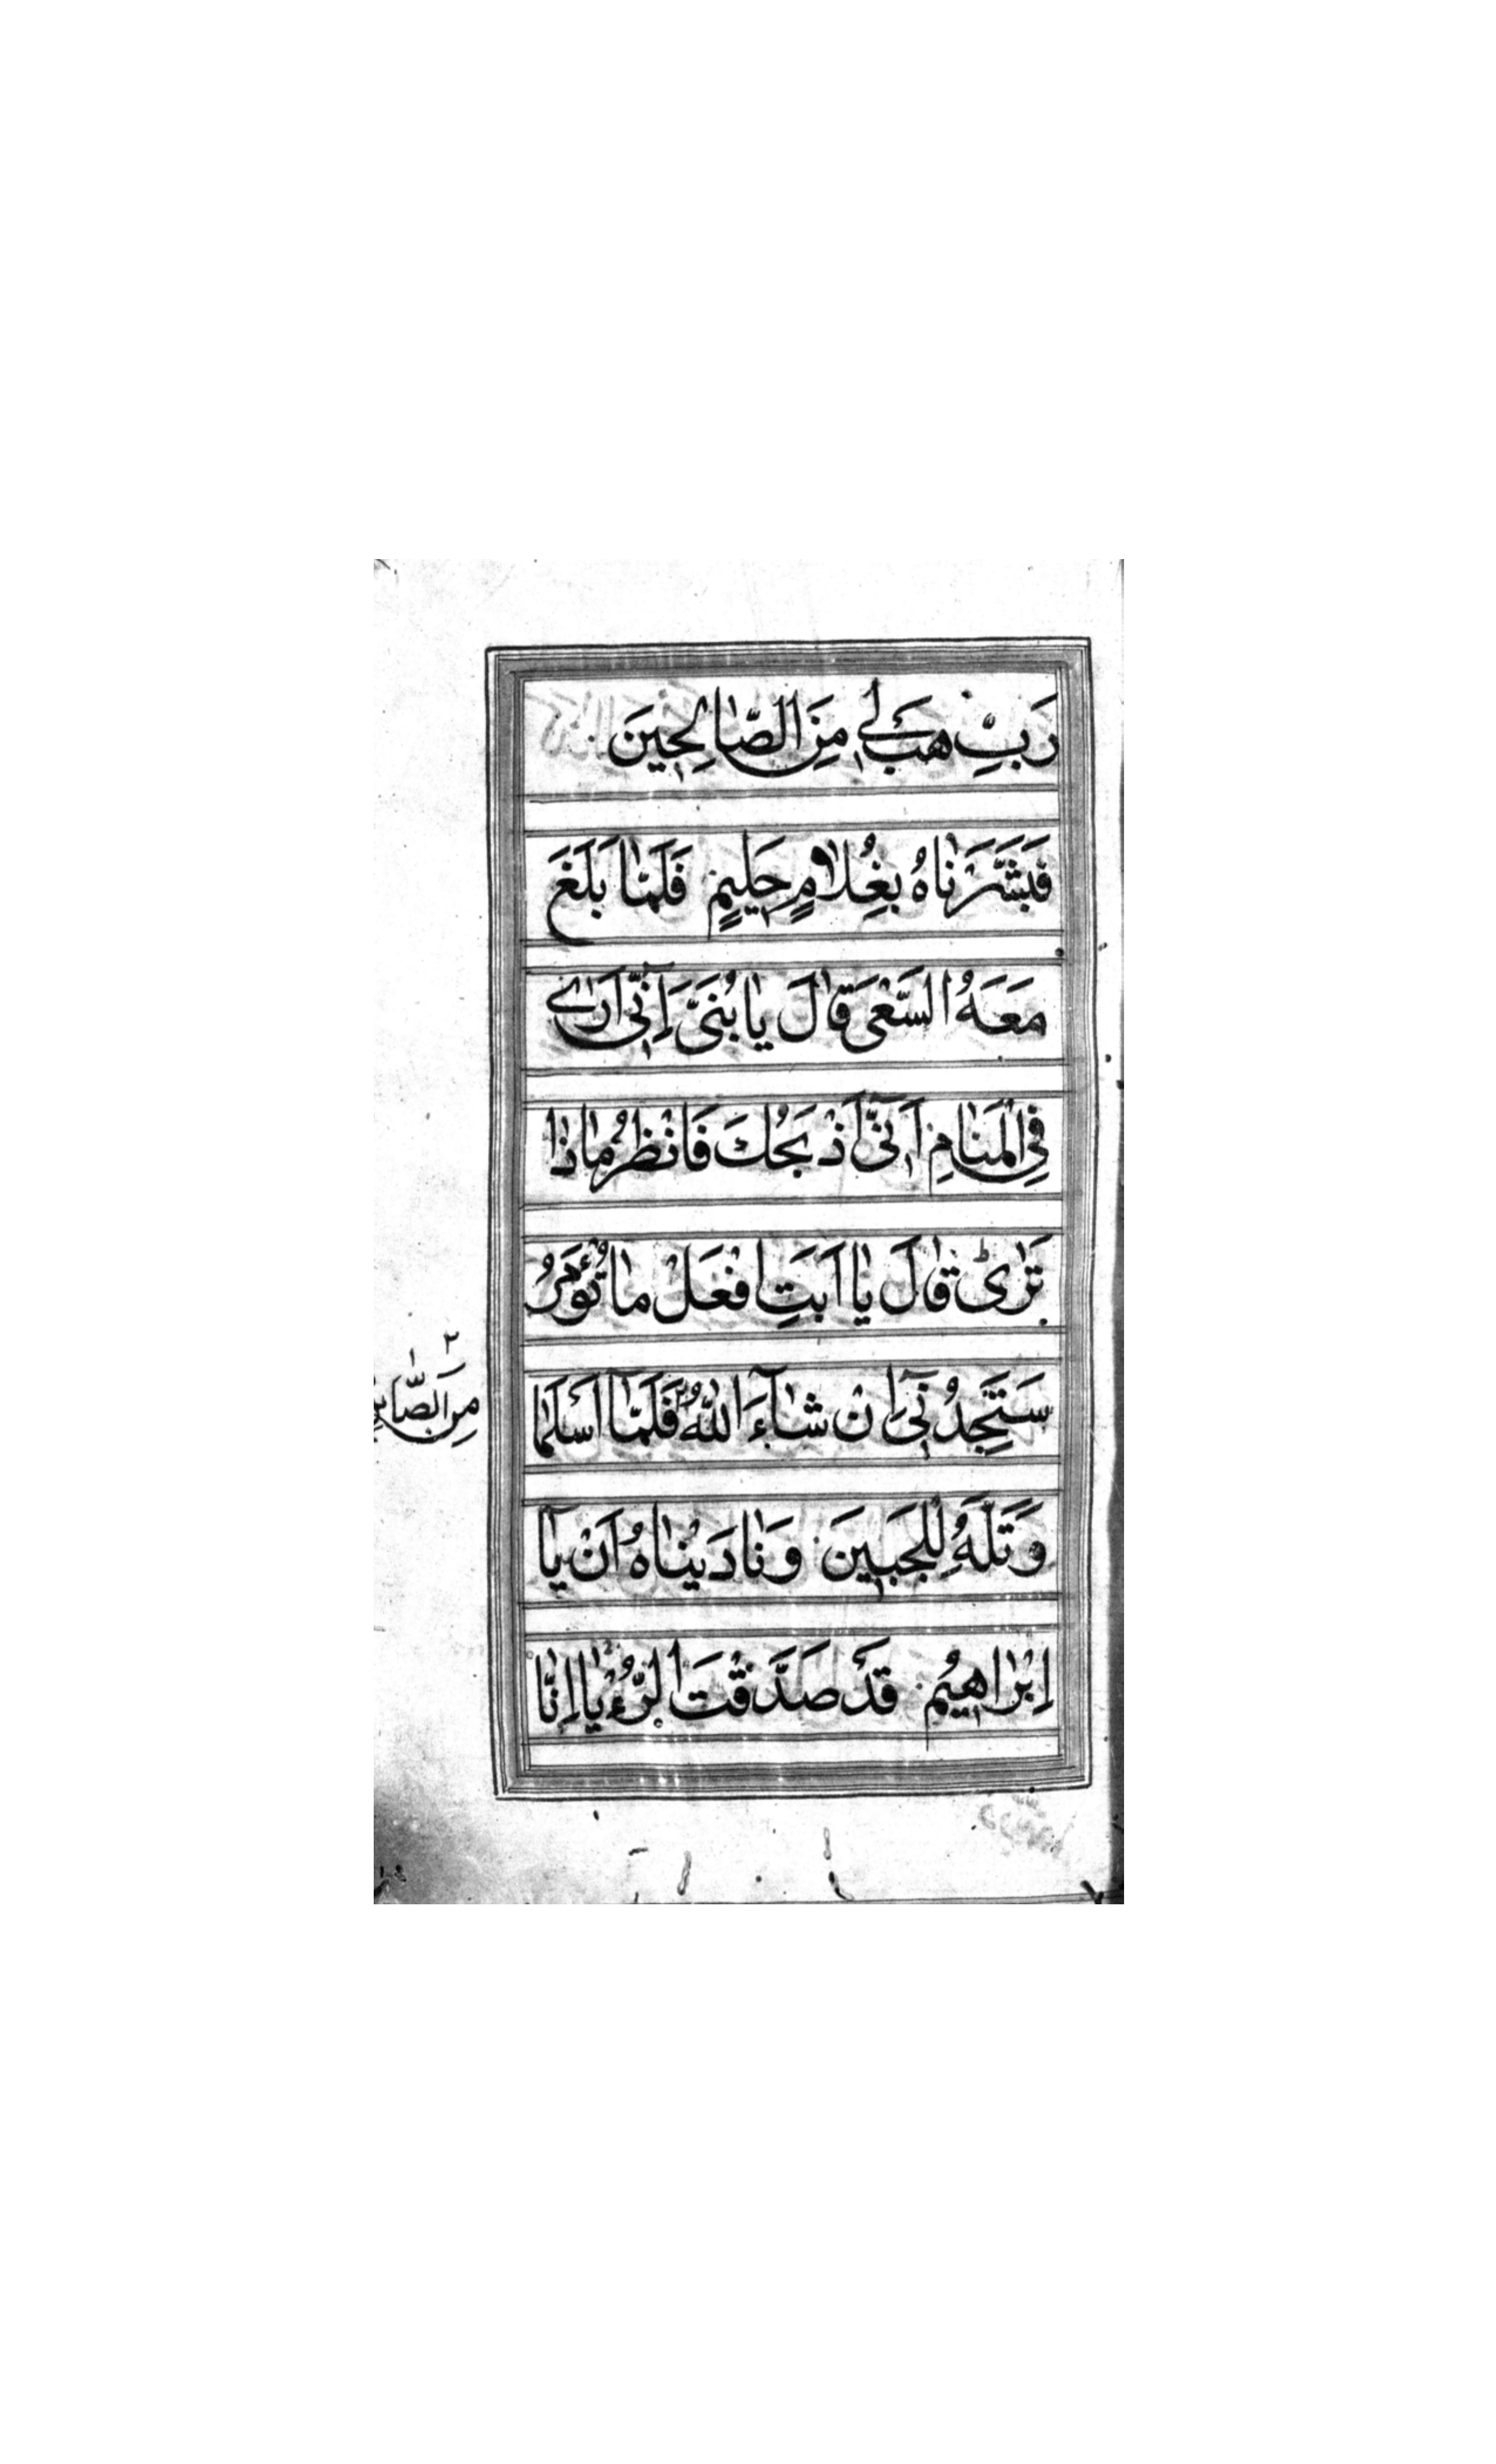 رَبِّ هَبْ لِي مِنَ الصَّالِحِينَ
فَبَشَّرْنَاهُ بِغُلَامٍ حَلِيمٍ فَلَمَّا بَلَغَ
مَعَهُ السَّعْیَ قَالَ يَا بُنَیَّ اِنّٖی اَرٰی
فِی الْمَنَامِ اَنّٖی اَذْبَحُكَ فَانْظُرْ مَاذَا
تَرٰیؕ قَالَ يَا اَبَتِ افْعَلْ مَا تُؤْمَرُ
سَتَجِدُنٖٓی اِنْ شَآءَ اللّٰهُ ۲ فَلَمَّآ اَسْلَمَا
مِنَ الصَّابِ ۲
وَتَلَّهُ لِلْجَبِينِ وَنَادَيْنَاهُ اَنْ يَآ
اِبْرَاهِيمُ قَدْ صَدَّقْتَ الرُّءْيَا اِنَّا